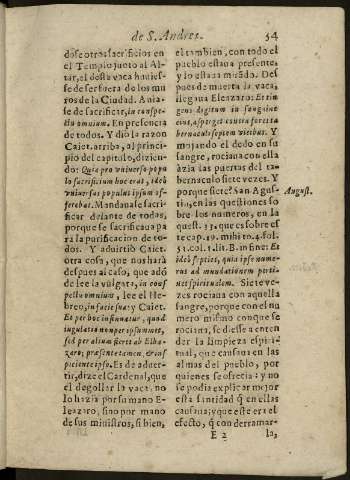 de S. Andres.
54
dose otros sacrificios en
el Templo junto al Al-
tar, el desta vaca huuies-
se de ser fuera de los mu-
ros de la Ciudad. Auia-
se de sacrificar, in conspe-
ctu omnium. En presencia
de todos. Y dio la razon
Caiet. arriba, al princi-
pio del capitulo, dizien-
do: Quia pro vniuerso popu
lo sacrificium hoc erat, ideò
vniuersus populus ipsum of-
ferebat. Mandanala sacri-
ficar delante de todas,
porque se sacrificaua pa
ra la purificacion de to-
dos. Y aduirtiò Caiet.
otra cosa, que nos harà
despues al caso, que adò
de lee la vulgata, in cons
pectu omnium, lee el He-
breo, in facie sua: y Caiet.
Et per hoc insinuatur, quod
iugulatio non per ipsummet,
sed per alium fieret ab Elha-
zaro; præsente tamen, & ins
piciente ipso. Es de aduer-
tir, dize el Cardenal, que
el degollar la vaca, no
lo hazia por su mano E-
leazaro, sino por mano
de sus ministros, si bien,
el tambien, con todo el
pueblo estaua presente,
y lo estaua mirādo. Des
pues de muerta la vaca,
llegaua Eleazaro: Et tin
gens digitum in sanguine
eius, asperget contra fores ta
bernaculi septem vicibus. Y
mojando el dedo en su
sangre, rociaua con ella
àzia las puertas del ta-
bernaculo siete vezes. Y
porque siete? San Agus-
tin, en las questiones so
bre los numeros, en la
quest. 33. que es sobre es
te cap. 19. mihi to. 4. fol.
51. col. 1. lit. B. in fine: Et
ideò septies, quia ipse nume-
rus ad mundationem perti-
net spiritualem. Siete ve-
zes rociaua con aquella
sangre, porque con el nu
mero mismo conque se
rociaua, se diesse à enten
der la limpieza espiri-
tual, que causaua en las
almas del pueblo, por
quienes se ofrecia: y no
se podia explicar mejor
esta santidad q̃ en ellas
causaua; y que este era el
efecto, q̃ con derramar-
August.
E 2
la,